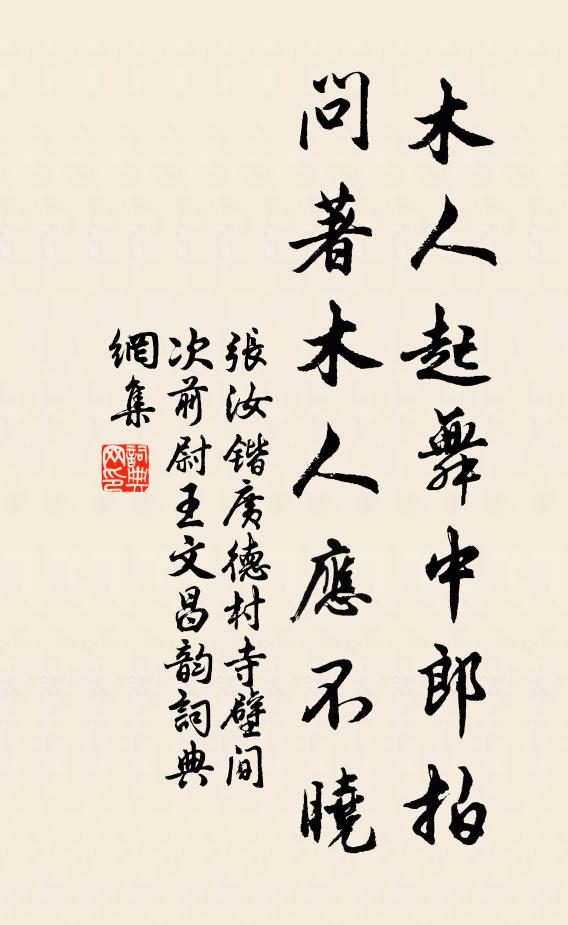 木人起舞中郎拍
問著木人應不曉
張汝鍇廣德村寺壁间
次前尉王文昌韵詞典
網集
詞典網印